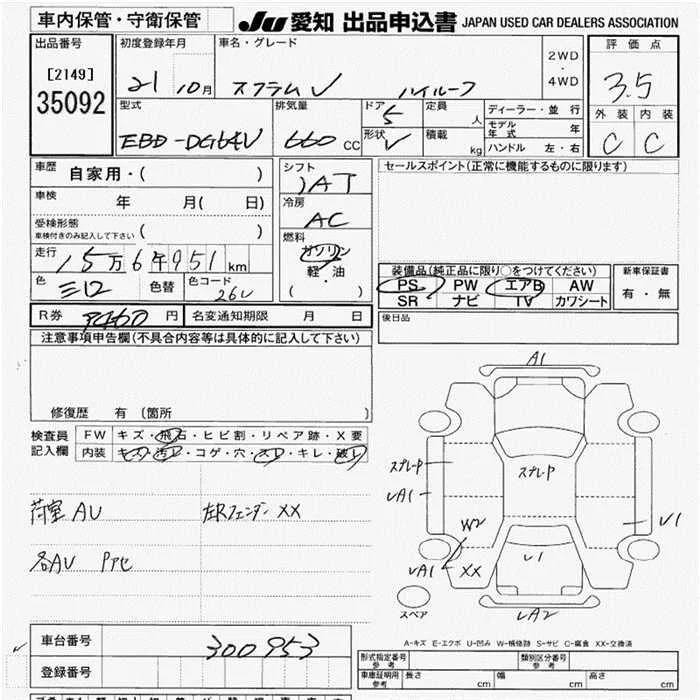 車内保管・守衛保管
JU 愛知 出品申込書 JAPAN USED CAR DEALERS ASSOCIATION
出品番号
[2149]
35092
初度登録年月
21 10月
車名・グレード
スクラムV ハイルーフ
2WD
・
4WD
評価点
3.5
外装 内装
C C
型式
EBD-DG64V
排気量
660 CC
ドア
5
形状
V
定員
人
積載
kg
ディーラー・並行
モデル年式 年
ハンドル 左・右
車歴 自家用・( )
車検 年 月( 日)
受検形態
車検付きのみ記入して下さい ( )
走行 15万6千951km
色 シロ 色替 色コード 26U
シフト
IAT
冷房
AC
燃料
ガソリン
軽・油
( )
セールスポイント(正常に機能するものに限ります)
装備品(純正品に限り○をつけてください)
PS PW エアB AW
SR ナビ TV カワシート
新車保証書
有・無
後日品
R券 円 名変通知期限 月 日
注意事項申告欄(不具合内容等は具体的に記入して下さい)
修復歴 有(箇所 )
検査員記入欄
FW キズ・飛石・ヒビ割・リペア跡・X要
内装 キズ・汚レ・コゲ・穴・スレ・キレ・破レ
荷室AU 左Rフェンダー XX
各AU Pアセ
A1
スプレーP
スプレーP
レA1
W2
レ1
レA1
XX
レ1
スペア
レA2
A-キズ E-エクボ U-凹み W-補修跡 S-サビ C-腐食 XX-交換済
車台番号 300953
登録番号
形式指定番号 参考
類別区分番号 参考
車庫証明用 参考 長さ cm 幅 cm 高さ cm